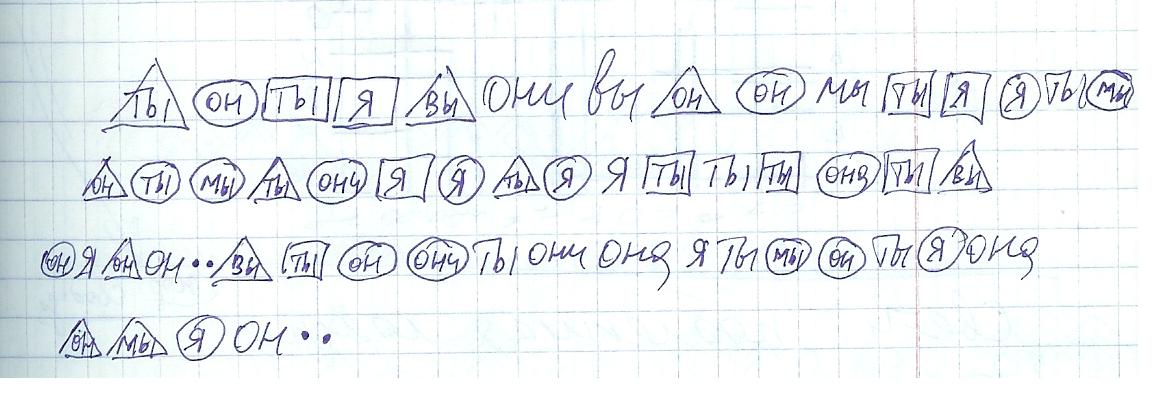 ТЫ ОН ТЫ Я ВЫ ОНИ ВЫ ОН ОН МЫ ТЫ Я Я ТЫ МЫ
ОН ТЫ МЫ ТЫ ОНИ Я Я ТЫ Я Я ТЫ ТЫ ТЫ ОНА ТЫ ВЫ
ОН Я ОН ОН •• ВЫ ТЫ ОН ОНИ ТЫ ОНИ ОНА Я ТЫ МЫ ОН ТЫ Я ОНА
ОН МЫ Я ОН ••